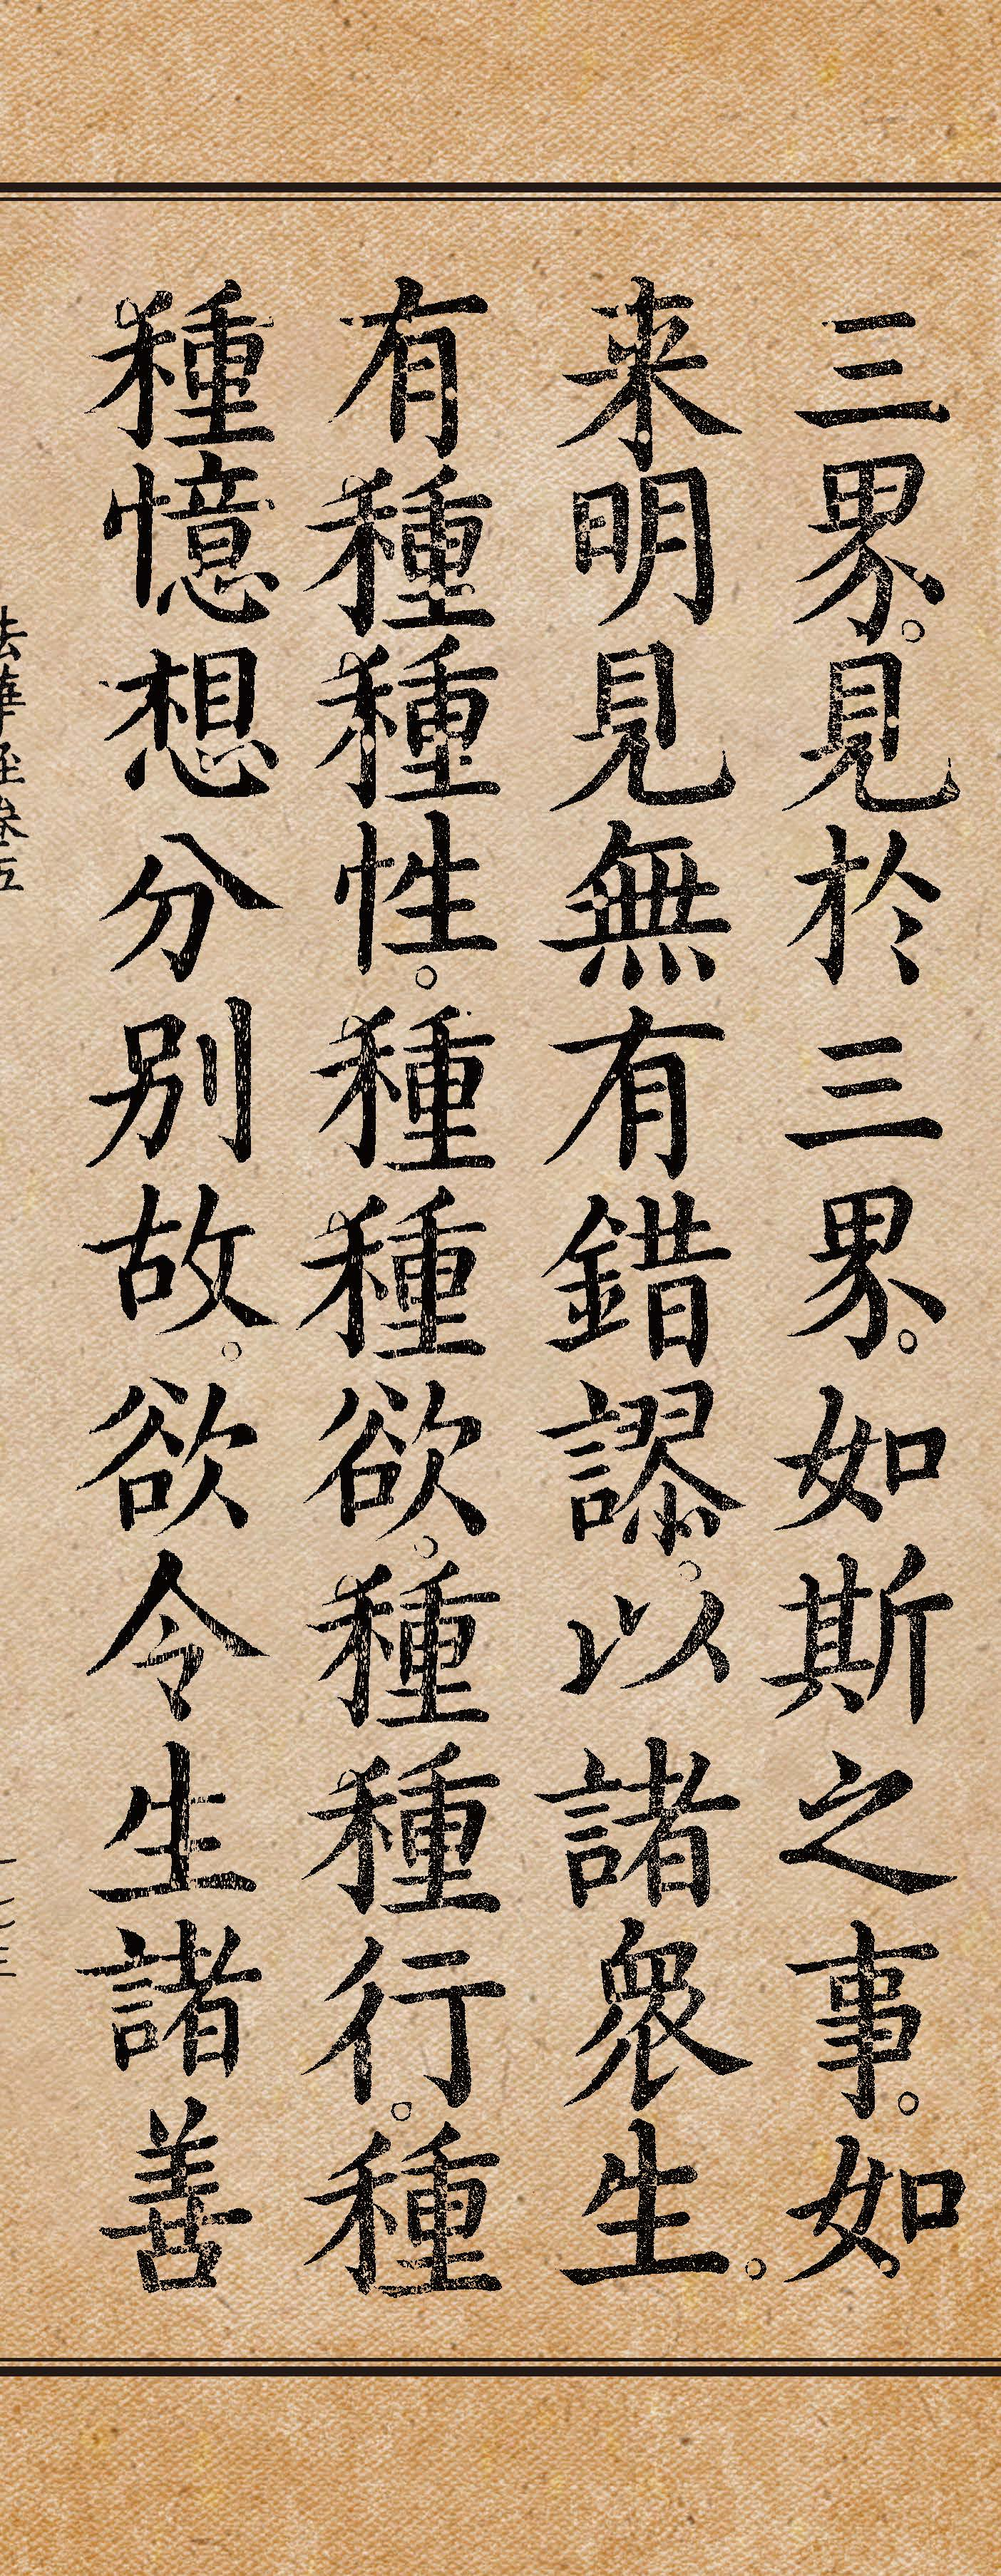 三界。見於三界。如斯之事。如
来明見無有錯謬。以諸衆生。
有種種性。種種欲。種種行。種
種憶想分別故。欲令生諸善
法華経巻五